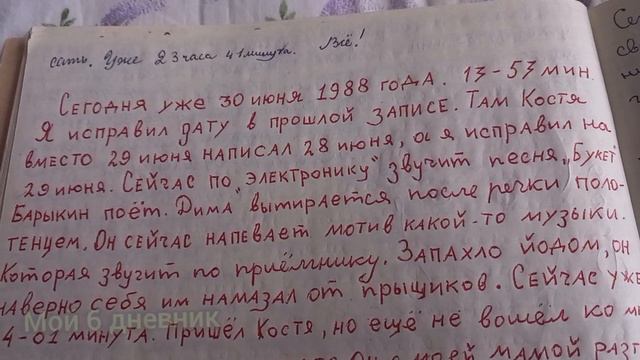 сать. Уже 23 часа 41 минута. Всё!
Сегодня уже 30 июня 1988 года. 13-53 мин.
Я исправил дату в прошлой записе. Там Костя
вместо 29 июня написал 28 июня, а я исправил на
29 июня. Сейчас по „электронику" звучит песня „Букет"
Барыкин поёт. Дима вытирается после речки поло-
тенцем. Он сейчас напевает мотив какой-то музыки.
которая звучит по приёмнику. Запахло йодом, он
наверно себя им намазал от прыщиков. Сейчас уже
4-01 минута. Пришёл Костя, но ещё не вошёл ко
мамой
Мой 6 дневник